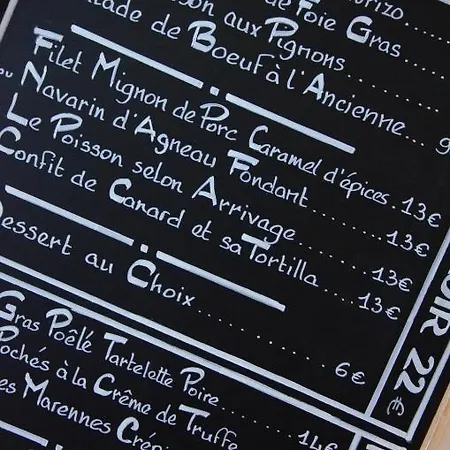 Foie Gras
aux Pignons
de Boeuf à l'Ancienne... 9
Filet Mignon de Porc Caramel d'épices. 13€
ou Navarin d'Agneau Fondant......... 13€
Le Poisson selon Arrivage......... 13€
Confit de Canard et sa Tortilla..... 13€
Dessert au Choix.............. 6€
OIR 22€
Gras Poêlé Tartelette Poire
Pochés à la Crème de Truffe...... 14€
es Marennes